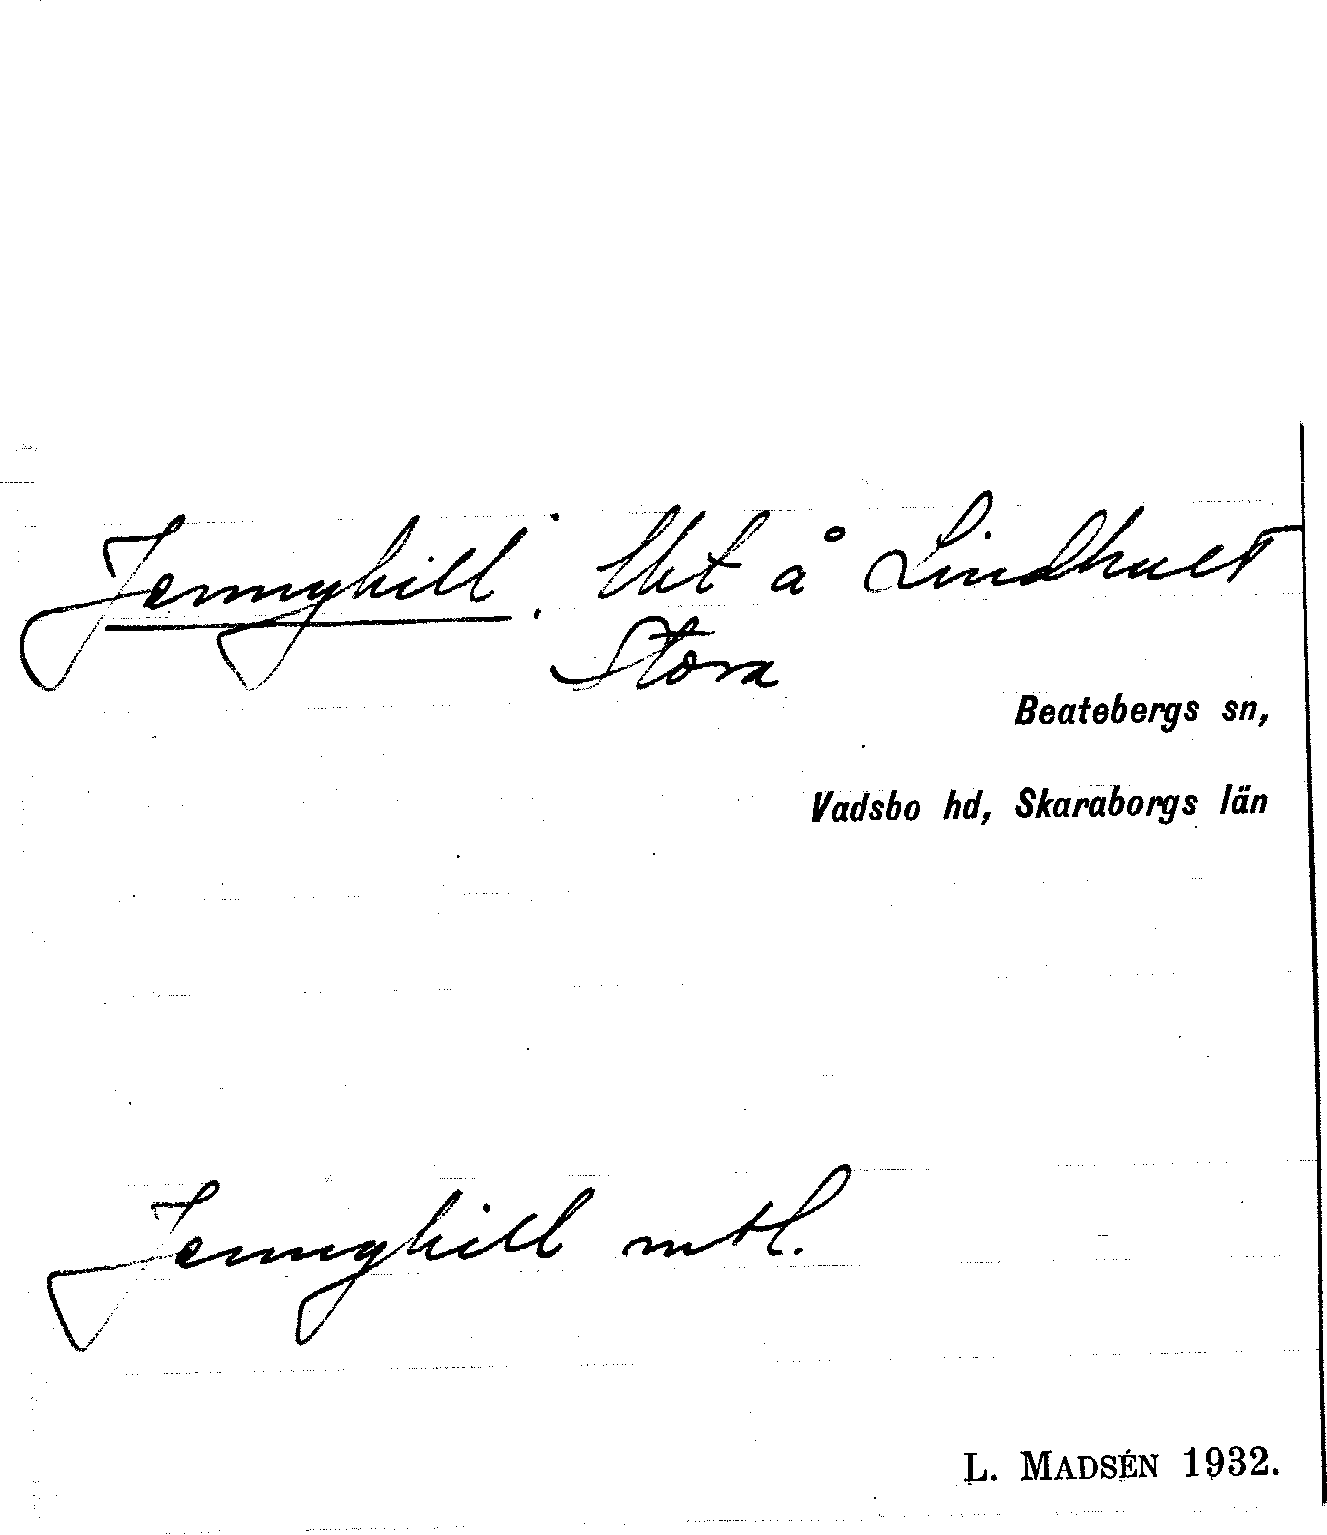 Jennyhill. lht å Lindhult
Stora
Beatebergs sn,
Vadsbo hd, Skaraborgs län
Jennyhill mtl.
L. MADSÉN 1932.